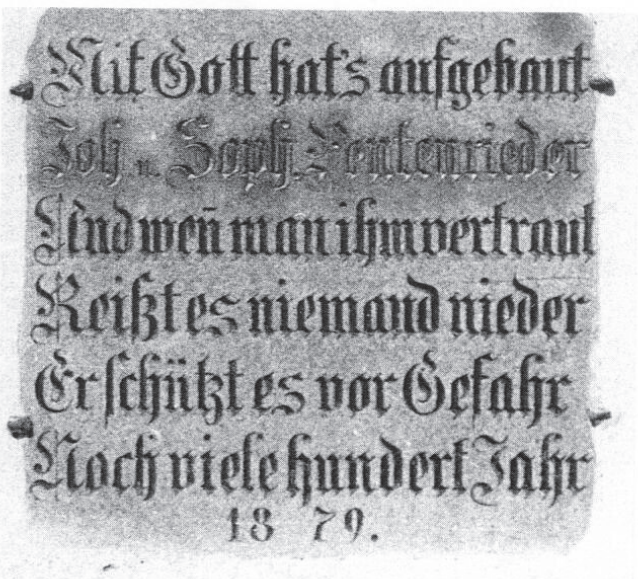 Mit Gott hat's aufgebaut
Joh. u. Soph. Pentenrieder
Und wen̄ man ihm vertraut
Reißt es niemand nieder
Er schützt es vor Gefahr
Noch viele hundert Jahr
1879.